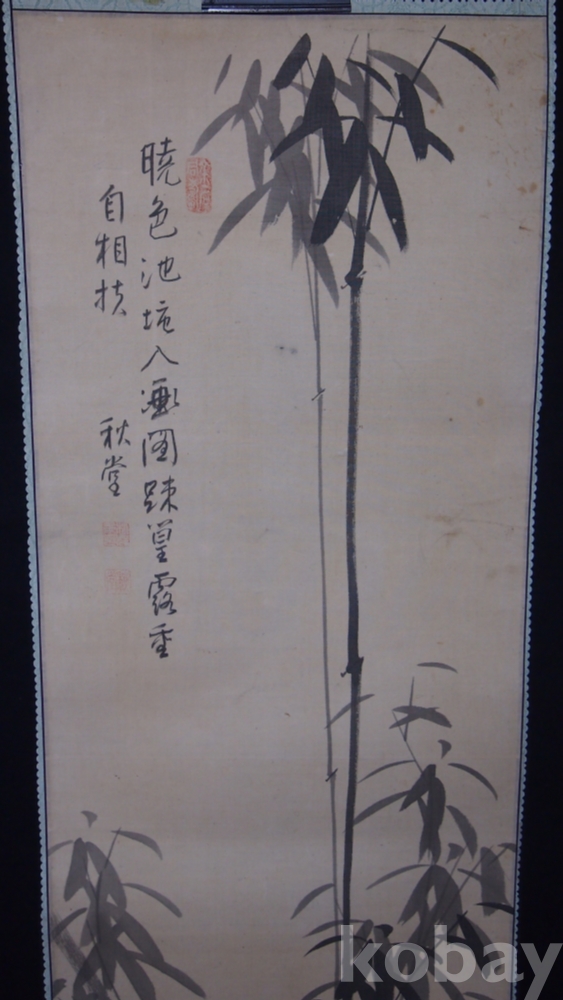 暁色池垞入畫図踈篁露重
自相扶
秋堂
kobay